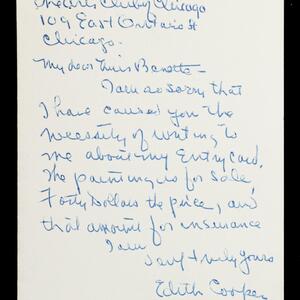 The Arts Club of Chicago
109 East Ontario St
Chicago.
My dear Miss
I am so sorry that
I have caused you the
necessity of writing to
me about my Entry Card.
The painting is for sale,
Forty Dollars the price, and
that amount for insurance
I am
Very truly yours
Edith Cooper